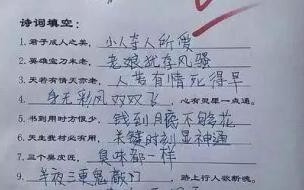 诗词填空:
1. 君子成人之美, 小人夺人所爱
2. 英雄宝刀未老, 老娘犹存风骚
3. 天若有情天亦老, 人若有情死得早
4. 身无彩凤双双飞, 心有灵犀一点通。
5. 书到用时方恨少, 钱到月底不够花
6. 天生我材必有用, 关键时刻显神通
7. 三个臭皮匠, 臭味都一样
9. 半夜三更鬼敲门, 路上行人欲断魂。